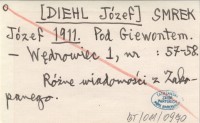 [DIEHL Józef] SMREK
Józef 1911. Pod Giewontem.
— Wędrowiec 1, nr : 57-58.
Różne wiadomości z Zako-
panego.